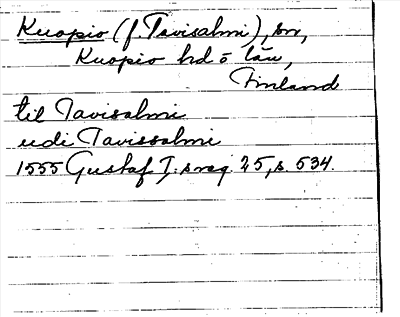 Kuopio (f. Tavisalmi), sn,
Kuopio hd o län,
Finland
til Tavisalmi
udi Tavissalmi
1555 Gustaf I:s reg. 25, s. 534.